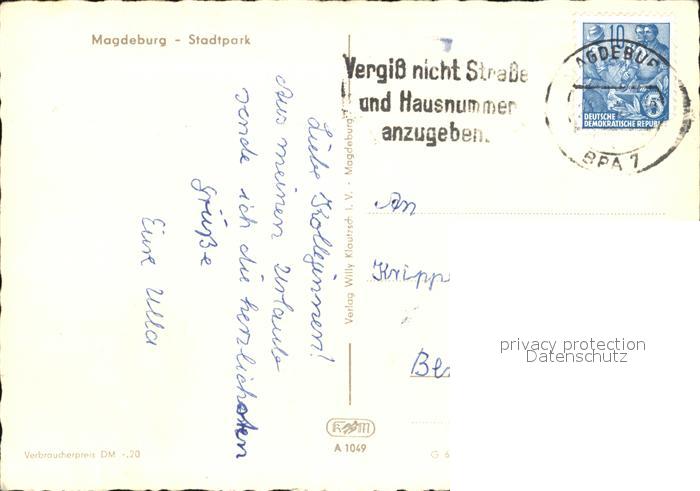 Magdeburg - Stadtpark
Liebe Kolleginnen!
Aus meinen Urlaub
sende ich die herzlichsten
Grüße
Eure Ulla
Verbraucherpreis DM -,20
Verlag Willy Klautzsch I. V. - Magdeburg
A 1049
G 6
Vergiß nicht Straße
und Hausnummer
anzugeben.
10
5
DEUTSCHE
DEMOKRATISCHE REPUBL
MAGDEBUR
BPA 7
An
Kripp
Be
privacy protection
Datenschutz